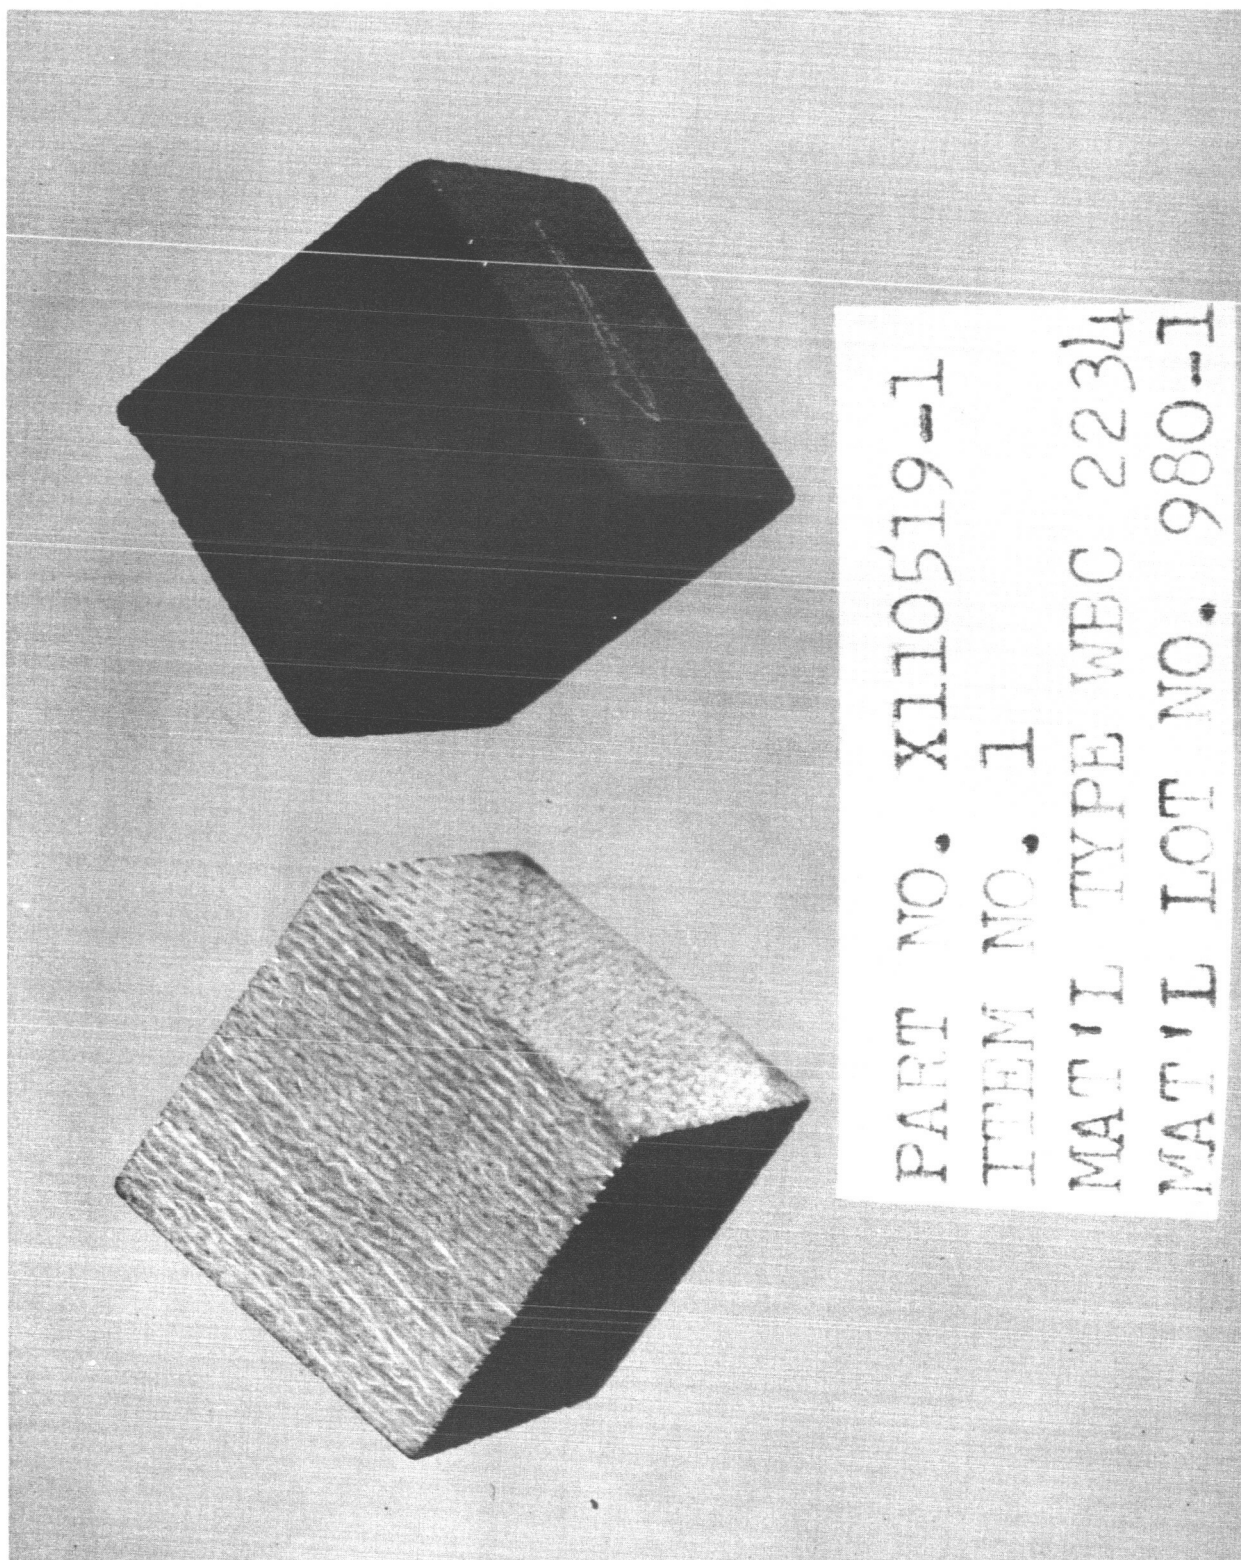 PART NO. X110519-1
ITEM NO. 1
MAT'L TYPE WBC 2234
MAT'L LOT NO. 980-1